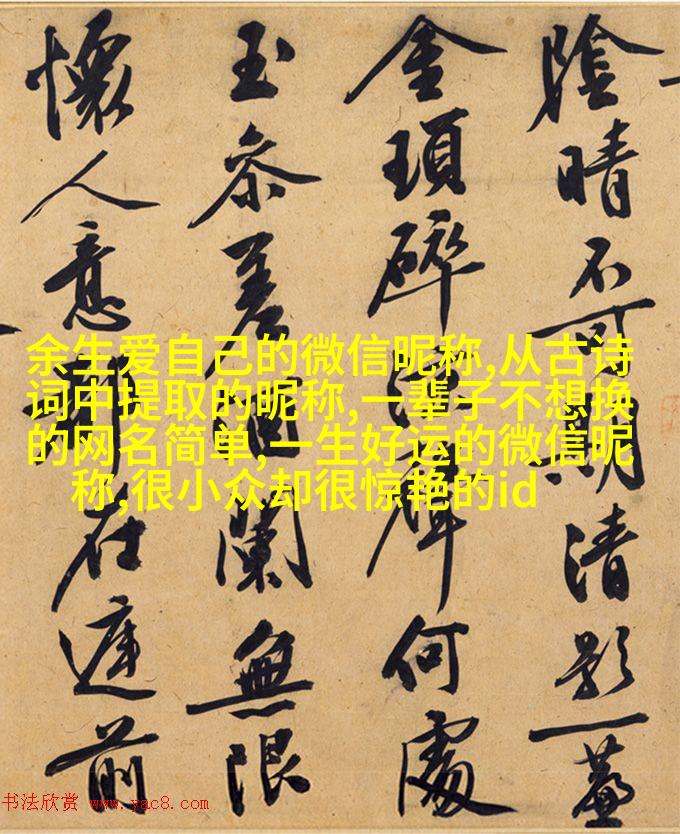 陰晴不可清影一
金瑣碎聲何處
玉參差闌無限
懷人意在前
余生爱自己的微信昵称,从古诗
词中提取的昵称,一辈子不想换
的网名简单,一生好运的微信昵
称,很小众却很惊艳的id
书法欣赏 www.yac8.com